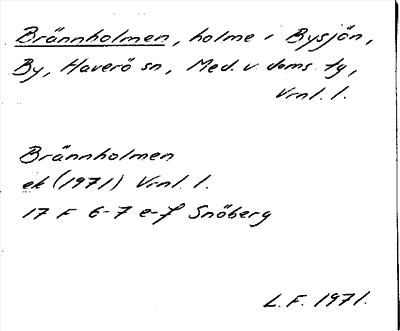 Brännholmen, holme i Bysjön,
By, Haverö sn, Med. v. doms. tg,
Vrnl. l.
Brännholmen
ek (1971) Vrnl. l.
17 F 6-7 e-f Snöberg
L.F. 1971.